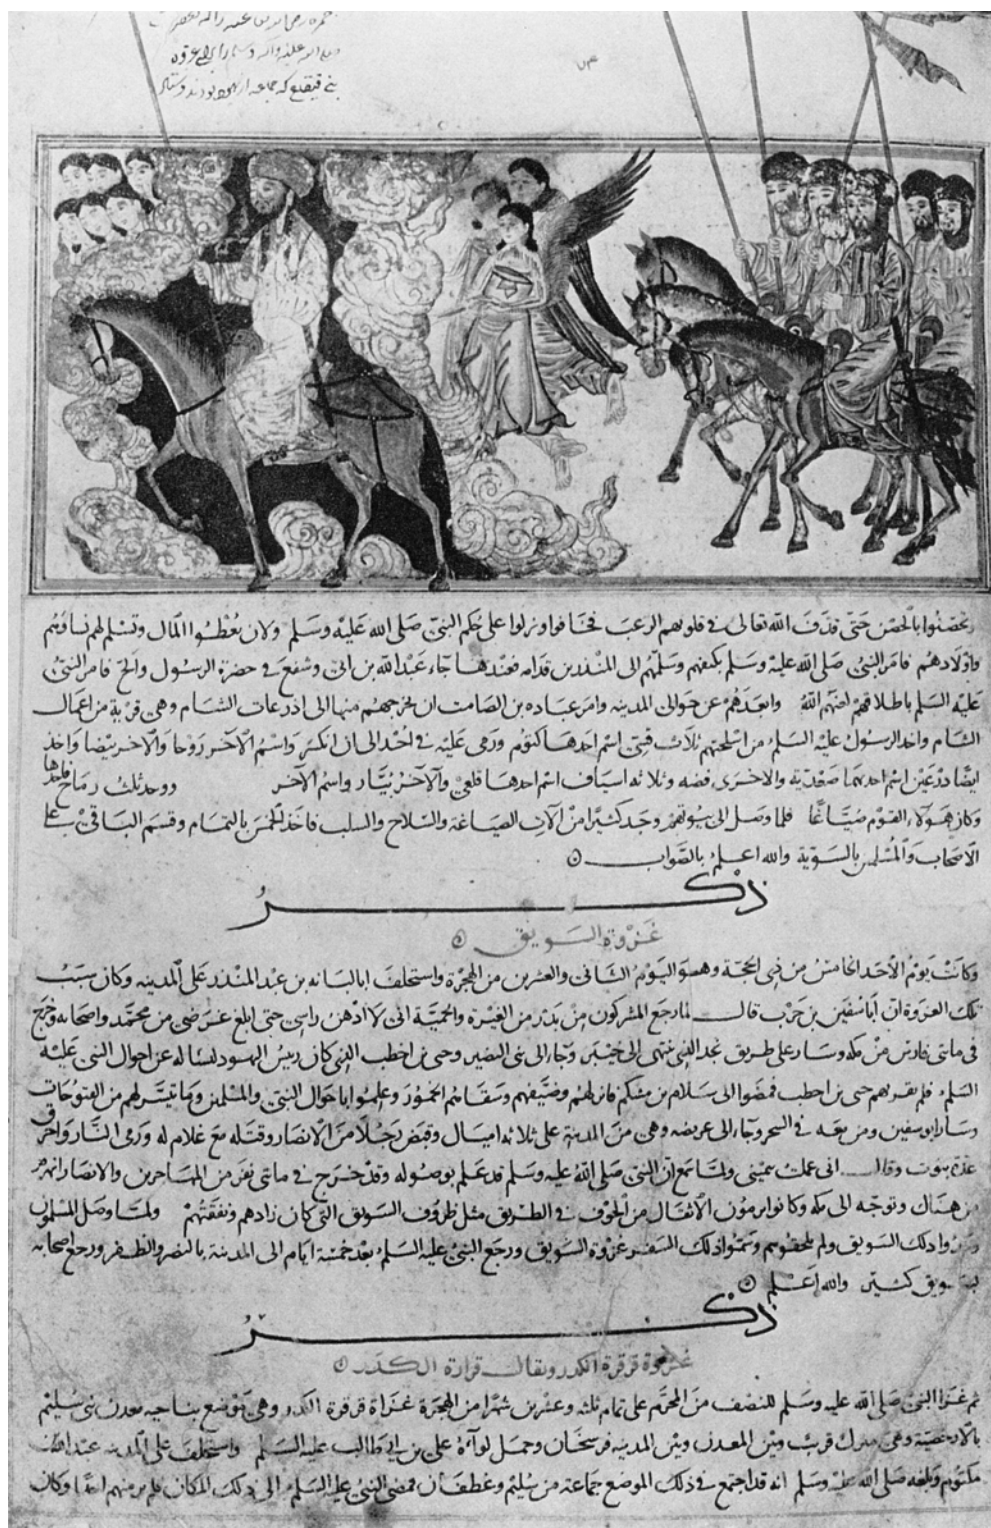 حمزه رضى الله عنه را كه بحضرت
صلى الله عليه وآله وسلم را براى غزوه
بنى قينقاع كه جماعه از يهود بودند
وتحصنوا بالحصن حتى قذف الله تعالى فى قلوبهم الرعب فخافوا ونزلوا على حكم النبى صلى الله عليه وسلم ولان يعطوا المال وتسلم لهم نساؤهم
واولادهم فامر النبى صلى الله عليه وسلم بكتفهم وسلمهم الى المنذر بن قدامه فعندها جاء عبد الله بن ابى وشفع فى حضرة الرسول والح فامر النبى
عليه السلم باطلاقهم لعنهم الله وابعدهم عن حوالى المدينه وامر عباده بن الصامت ان يخرجهم منها الى اذرعات الشام وهى قرية من اعمال
الشام واخذ الرسول عليه السلم من اسلحتهم ثلاث قسى اسم احدها كتوم ورمى عليه فى احد الى ان انكسر واسم الآخر روحا والآخر بيضا واخذ
ايضا درعين اسم احديهما صغديه والاخرى فضه وثلاثه اسياف اسم احدها قلعى والآخر بتار واسم الآخر ووجد ثلث رماح
وكان هولاء القوم صياغا فلما وصل الى بيوتهم وجد كثيرا من الآت الصياغة والسلاح والسلب فاخذ الخمس بالتمام وقسم الباقى على
الاصحاب والمسلمين بالسوية والله اعلم بالصواب
ذكر
غزوة السويق
وكانت يوم الأحد الخامس من ذى الحجة وهو اليوم الثانى والعشرين من الهجرة واستخلف ابا لبابه بن عبد المنذر على المدينه وكان سبب
تلك الغزوة ان ابا سفين بن حرب قال لما رجع المشركون من بدر من الغيرة والحمية انى لا ادهن راسى حتى ابلغ غرضى من محمد واصحابه وخرج
فى مائتى فارس من مكه وسار على طريق نجد التى تنتهى الى خيبر وجاء الى بنى النضير وحيى بن اخطب الذى كان رئيس اليهود لنساله عن احوال النبى عليه
السلم فلم يقربهم حيى بن اخطب فمضوا الى سلام بن مشكم فانزلهم وضيفهم وسقاهم الخمور وعلموا باحوال النبى والمسلمين وما تيسر لهم من الفتوحات
وسار ابو سفين ومن معه فى السحر وجاء الى عريضه وهى من المدينة على ثلاثه اميال وقبض رجلا من الانصار وقتله مع غلام له ورمى النار واحرق
عدة بيوت وقال انى عملت بيمينى ولما سمع ان النبى صلى الله عليه وسلم قد علم بوصوله وقد خرج فى مائتى نفر من المهاجرين والانصار انهزم
من هناك وتوجه الى مكه وكانوا يرمون الاثقال من الخوف فى الطريق مثل ظروف السويق التى كان زادهم ونفقتهم ولما وصل المسلمون
ذلك السويق ولم يلحقوهم وسموا ذلك السفر غزوة السويق ورجع النبى عليه السلم بعد خمسة ايام الى المدينة بالنصر والظفر ورجع اصحابه
بسويق كثير والله اعلم
ذكر
غزوة قرقرة الكدر ويقال قرارة الكدر
ثم غزا النبى صلى الله عليه وسلم للنصف من المحرم على تمام ثلثه وعشرين شهرا من الهجرة غزاة قرقرة الكدر وهى موضع بناحيه معدن بنى سليم
قريب وبين المعدن وبين المدينه فرسخان وحمل لوآءه على بن ابى طالب عليه السلم واستخلف على المدينه عبد الله بن
مكتوم وبلغه صلى الله عليه وسلم انه قد اجتمع فى ذلك الموضع جماعة من سليم وغطفان فمضى النبى عليه السلم الى ذلك المكان فلم ير منهم احدا وكان